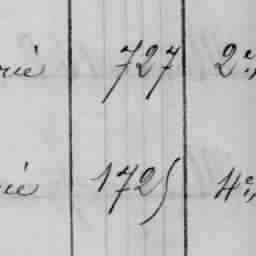 rié 727 2e
rié 1725 4e